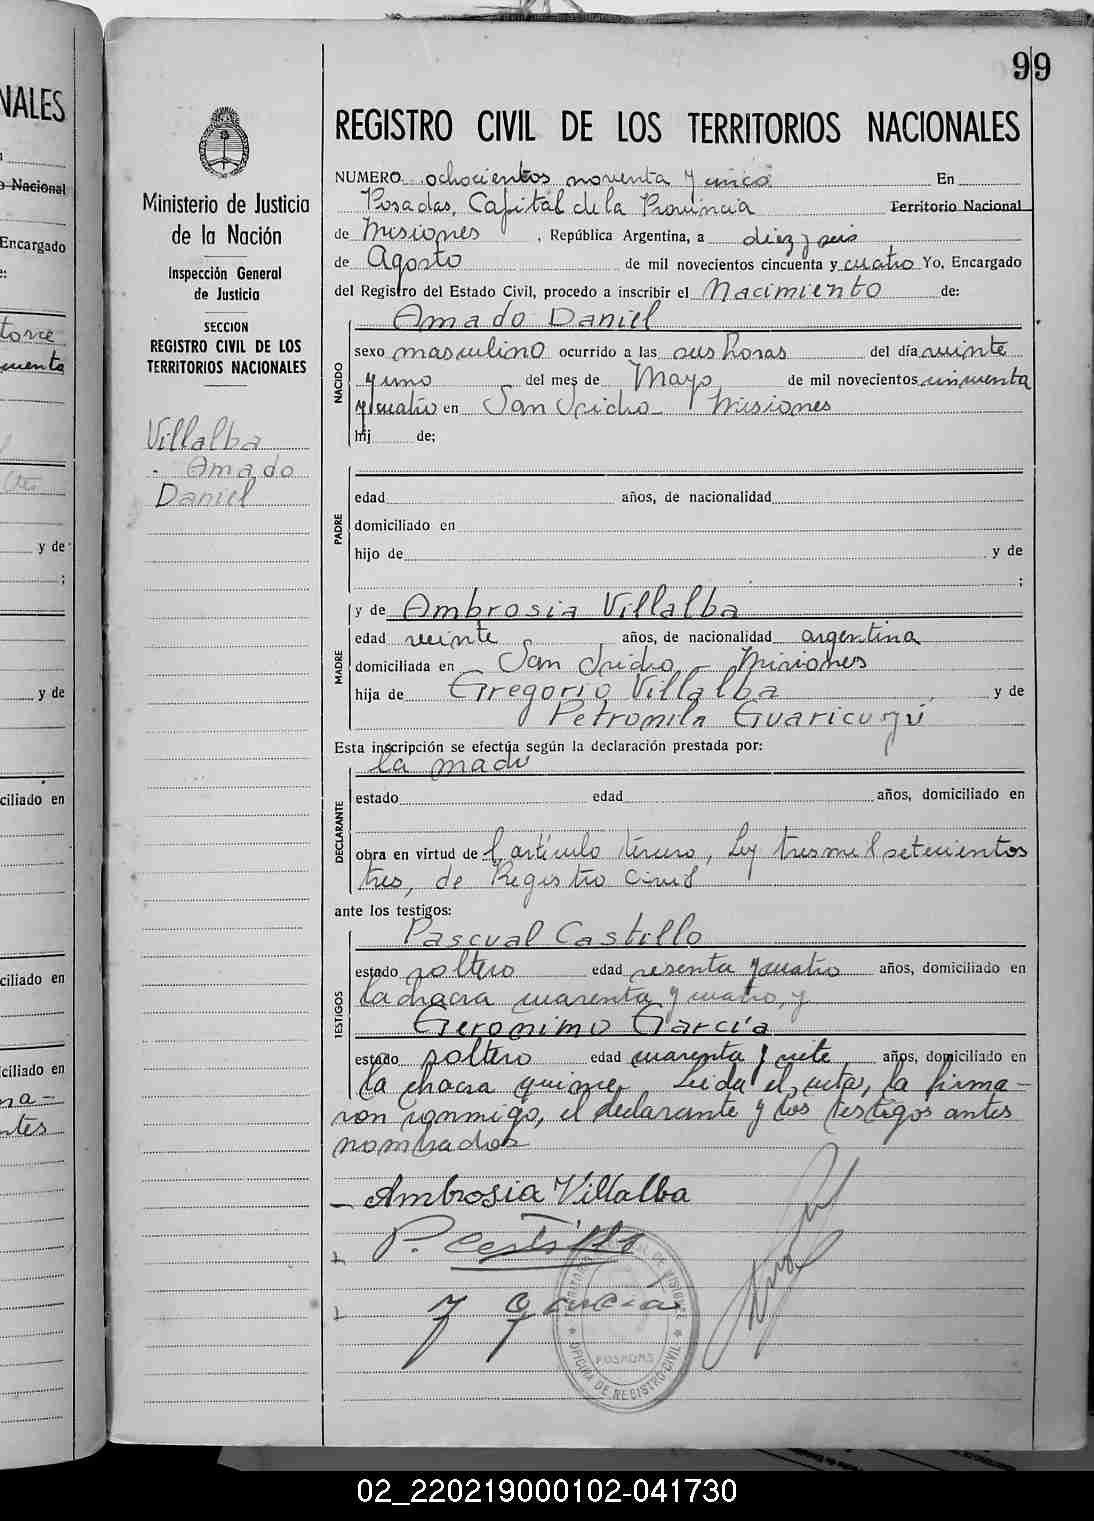 99
REGISTRO CIVIL DE LOS TERRITORIOS NACIONALES
Ministerio de Justicia
de la Nación
Inspección General
de Justicia
SECCION
REGISTRO CIVIL DE LOS
TERRITORIOS NACIONALES
Villalba
Amado
Daniel
NUMERO ochocientos noventa y cinco En
Posadas, Capital de la Provincia Territorio Nacional
de Misiones, República Argentina, a diez y seis
de Agosto de mil novecientos cincuenta y cuatro Yo, Encargado
del Registro del Estado Civil, procedo a inscribir el Nacimiento de:
Amado Daniel
NACIDO
sexo masculino ocurrido a las seis horas del día veinte
y uno del mes de Mayo de mil novecientos cincuenta
y cuatro en San Isidro Misiones
hij de;
PADRE
edad años, de nacionalidad
domiciliado en
hijo de y de
;
y de Ambrosia Villalba
MADRE
edad veinte años, de nacionalidad argentina
domiciliada en San Isidro - Misiones
hija de Gregorio Villalba y de
Petronila
Esta inscripción se efectúa según la declaración prestada por:
la madre
DECLARANTE
estado edad años, domiciliado en
obra en virtud de l artículo tercero, Ley tres mil setecientos
tres, de Registro Civil
ante los testigos:
Pascual Castillo
TESTIGOS
estado soltero edad sesenta y cuatro años, domiciliado en
la chacra cuarenta y cuatro, y
Geronimo García
estado soltero edad cuarenta y siete años, domiciliado en
la chacra quince. Leida el acta, la firma-
ron conmigo, el declarante y los testigos antes
nombrados
Ambrosia Villalba
P. Castillo
J Garcia
POSADAS
OFICINA DE REGISTRO CIVIL
NALES
Nacional
Encargado
y de
;
y de
ciliado en
ciliado en
ciliado en
02_220219000102-041730